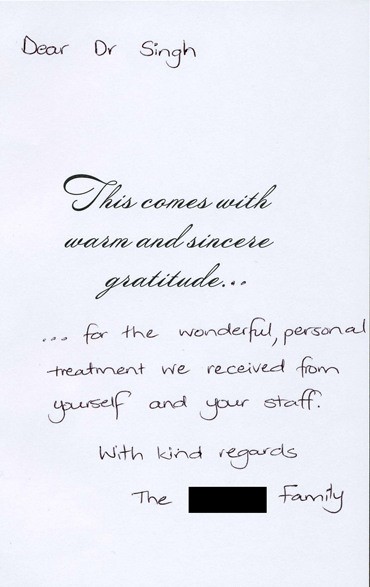 Dear Dr Singh
This comes with
warm and sincere
gratitude...
... for the wonderful, personal
treatment we received from
yourself and your staff.
With kind regards
The Family